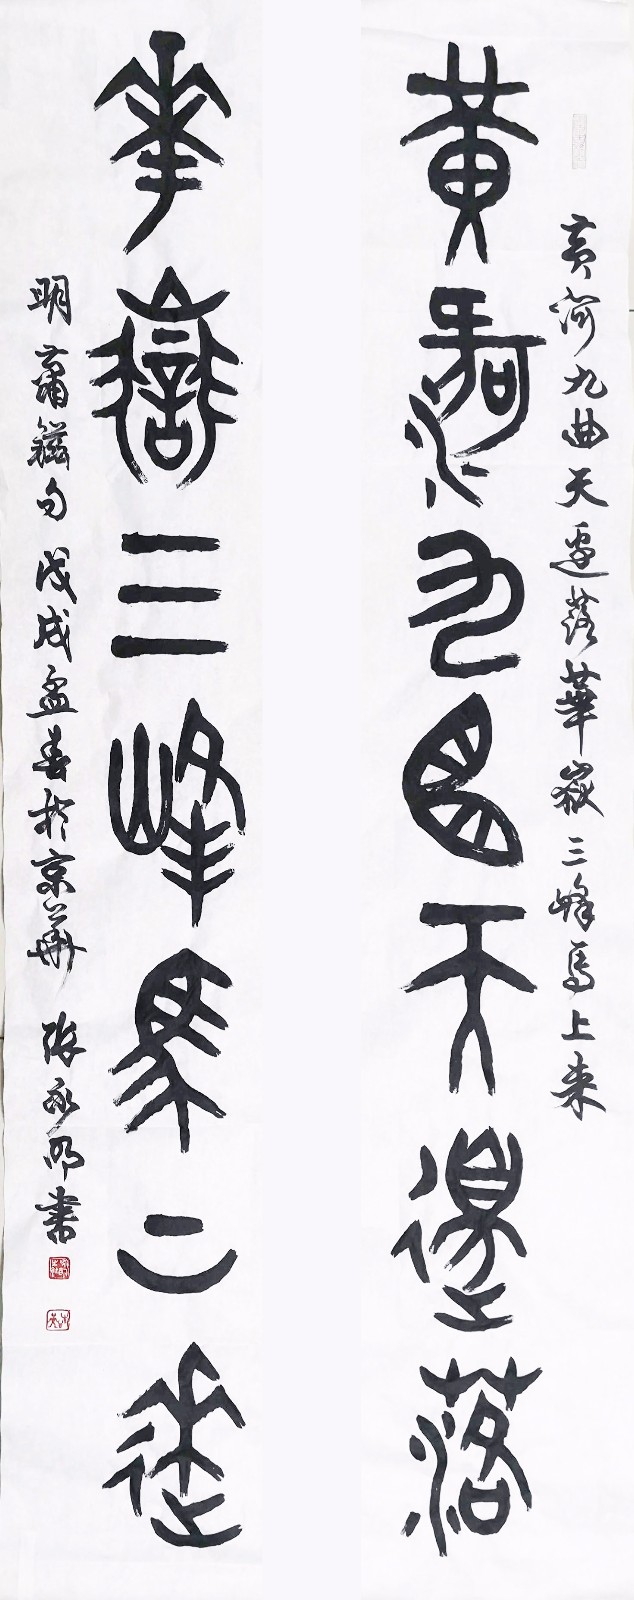 黄河九曲天邊落華嶽三峰馬上来
黄河九曲天邊落
華嶽三峰馬上來
明蕭籍句戊戌孟春於京華 張永明書